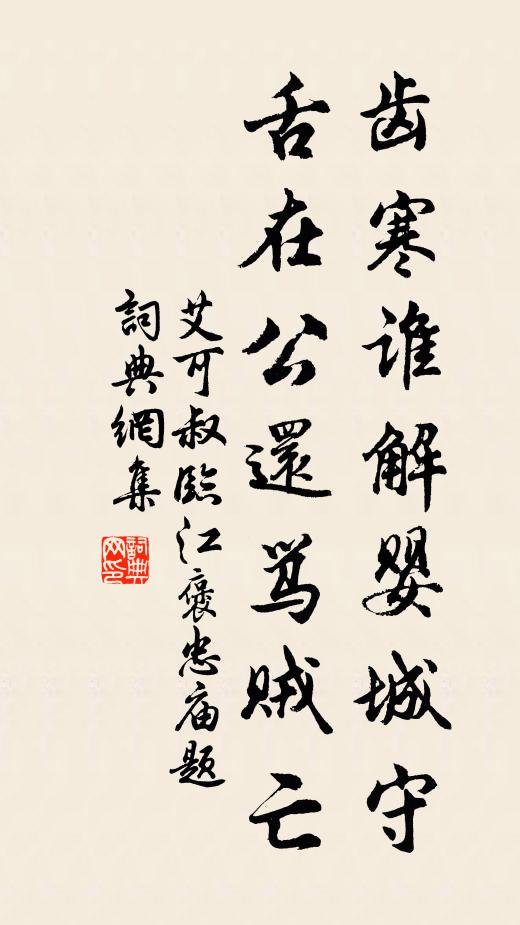 齿寒谁解婴城守
舌在公還骂贼亡
艾可叔臨江褒忠庙题
詞典網集
詞典网印